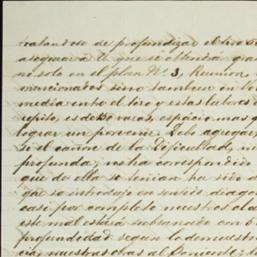 tratandose de profundizar el tiro
asegurará que se obtendrá
no solo en el plan Nº 3, Reunion,
mencionados sino tambien en
media entre el tiro y estas labores
repito, es de 80 varas, espacio mas
lograr un porvenir. Solo agregar
si el cañon de la Dificultad,
profunda, no ha correspondido
que de ella se tenian ha sido
que se introdujo en sentido
casi por completo nuestros
este mal estará subsanado con
profundidad segun lo demuestra
nuestras al Poniente